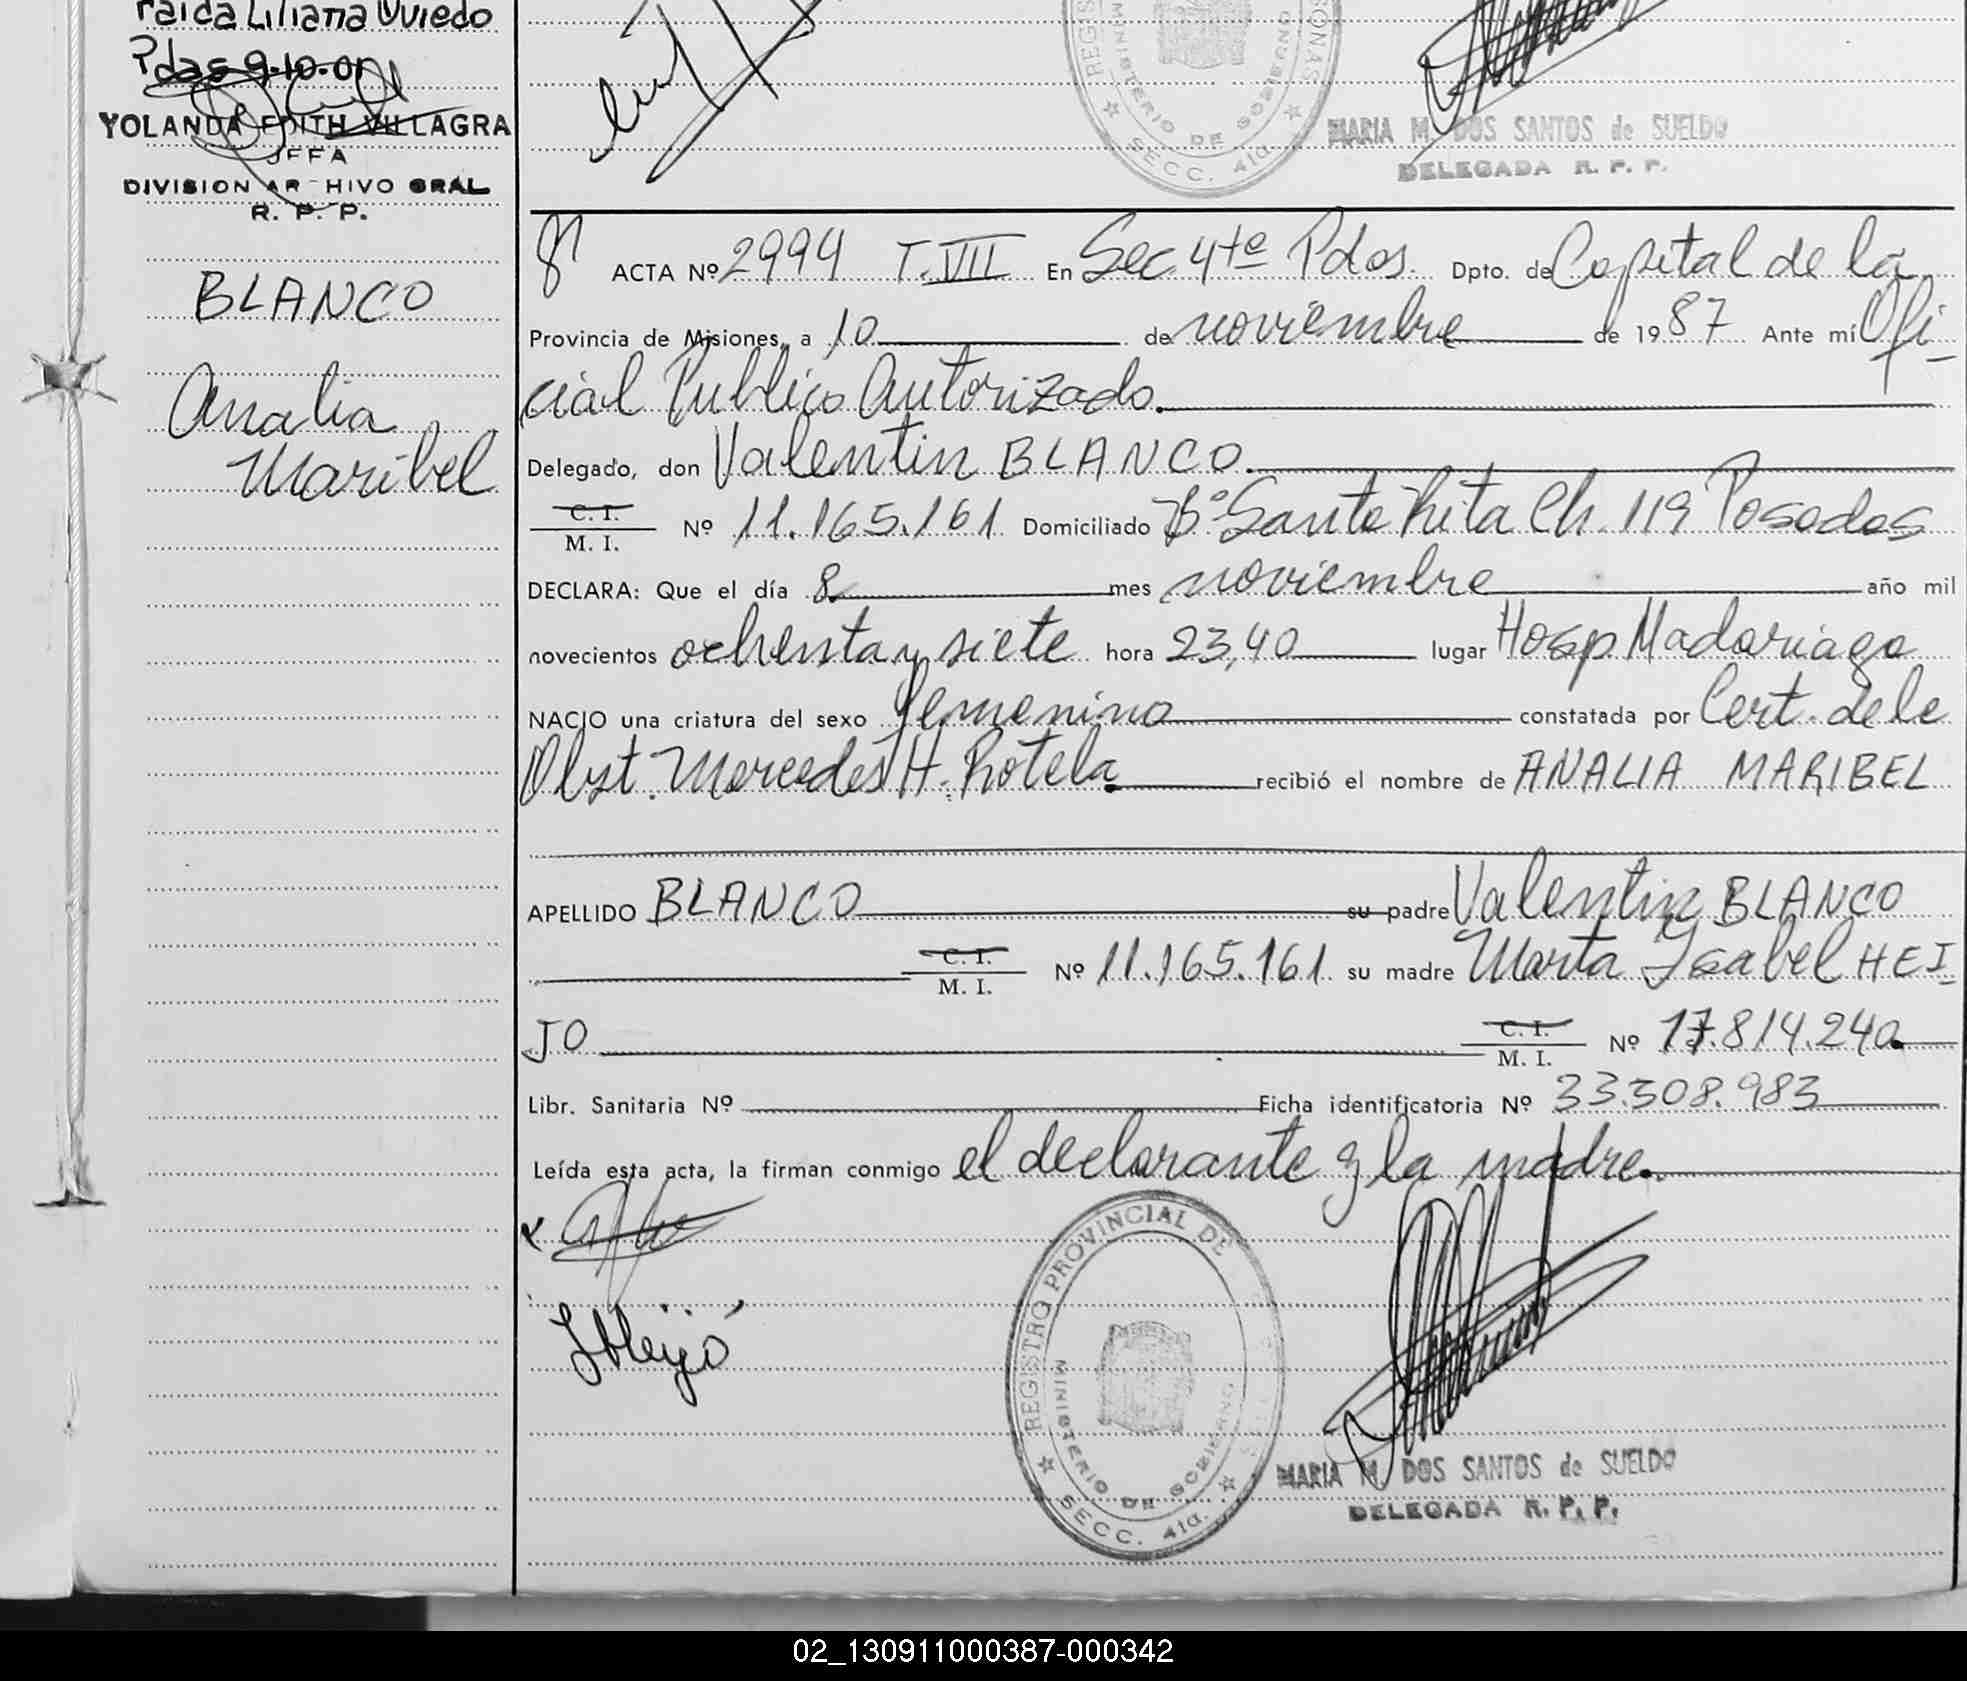 raida Liliana Oviedo
Pdas 9.10.01
YOLANDA EDITH VILLAGRA
JEFA
DIVISION AR HIVO GRAL
R. P. P.
REGIS SONAS
MINISTERIO DE GOBIERNO
SECC. 4ta.
MARIA M. DOS SANTOS de SUELDO
DELEGADA R. P. P.
BLANCO
Analia
Maribel
ACTA Nº 2994 T. VII En Sec 4ta Pdas. Dpto. de Capital de la
Provincia de Misiones, a 10 de noviembre de 1987 Ante mí Ofi-
cial Publico Autorizado.
Delegado, don Valentin BLANCO.
C. I.
M. I. Nº 11.165.161 Domiciliado Bº Santa Rita Ch. 119 Posadas
DECLARA: Que el día 8 mes noviembre año mil
novecientos ochenta y siete hora 23,40 lugar Hosp Madariaga
NACIO una criatura del sexo femenino constatada por Cert. de la
Obst. Mercedes H. Rotela recibió el nombre de ANALIA MARIBEL
APELLIDO BLANCO su padre Valentin BLANCO
C. I.
M. I. Nº 11.165.161 su madre Marta Isabel HEI
JO C. I.
M. I. Nº 17.814.240.
Libr. Sanitaria Nº Ficha identificatoria Nº 33.508.983
Leída esta acta, la firman conmigo el declarante y la madre.
REGISTRO PROVINCIAL DE
MINISTERIO DE GOBIERNO
SECC. 4ta.
MARIA M. DOS SANTOS de SUELDO
DELEGADA R. P. P.
02_130911000387-000342